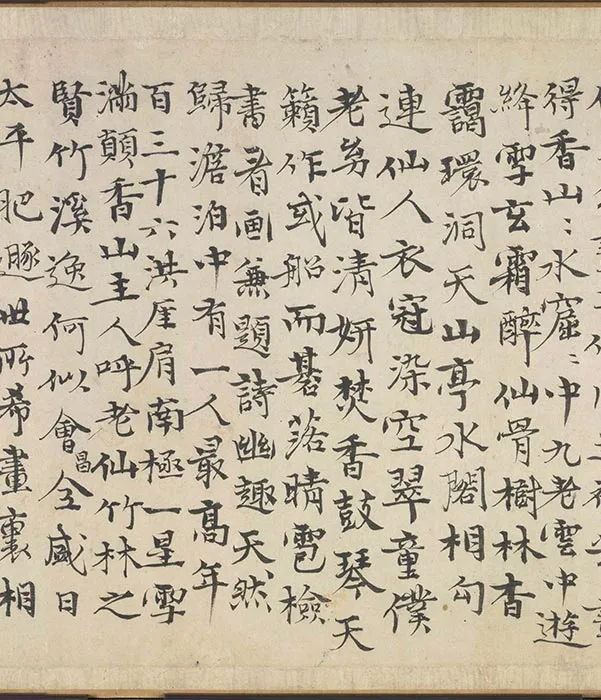 得香山〻水窟〻中九老雲中遊
絳雪玄霜醉仙骨樹林杳
靄環洞天山亭水閣相勾
連仙人衣冠染空翠童僕
老幼皆清妍焚香鼓琴天
籟作或船而碁落晴雹檢
書看画兼題詩幽趣天然
歸澹泊中有一人最高年
百三十六洪厓肩南極一星雪
滿顛香山主人呼老仙竹林之
賢竹溪逸何似會昌全盛日
太平肥遯世所希畫裏相